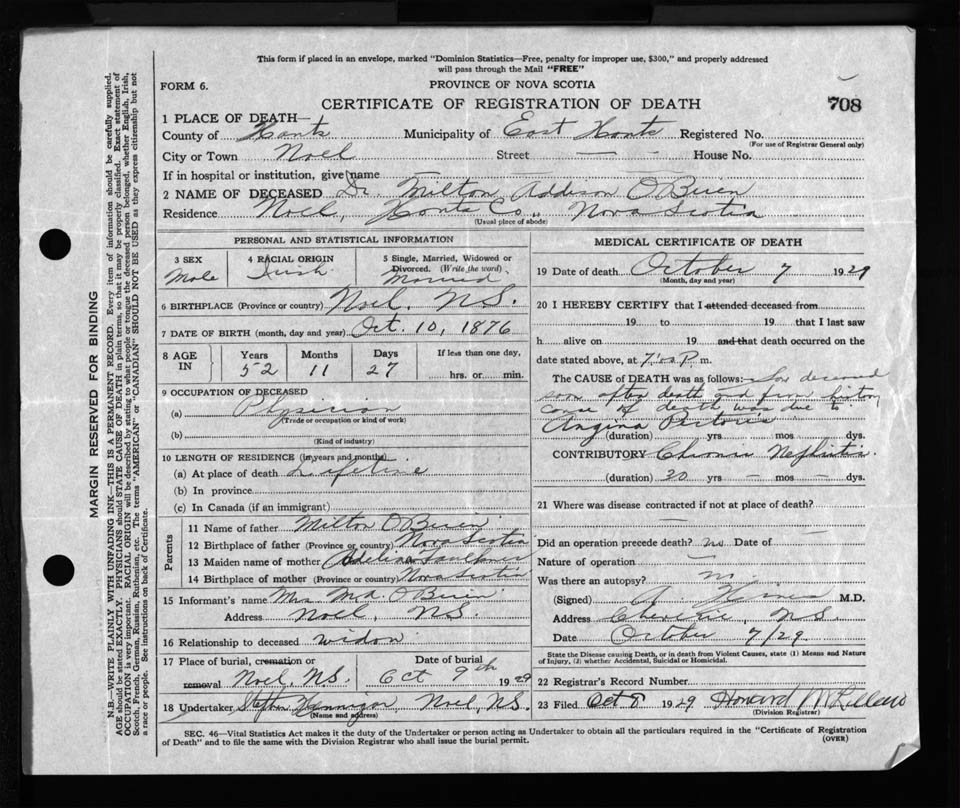 This form if placed in an envelope, marked "Dominion Statistics—Free, penalty for improper use, $300," and properly addressed
will pass through the Mail "FREE"
FORM 6.
PROVINCE OF NOVA SCOTIA
CERTIFICATE OF REGISTRATION OF DEATH
708
1 PLACE OF DEATH—
County of Hants Municipality of East Hants Registered No.
(For use of Registrar General only)
City or Town Noel Street — — House No.
If in hospital or institution, give name
2 NAME OF DECEASED Dr. Milton Addison O'Brien
Residence Noel, Hants Co., Nova Scotia
(Usual place of abode)
PERSONAL AND STATISTICAL INFORMATION
3 SEX 4 RACIAL ORIGIN 5 Single, Married, Widowed or
Divorced. (Write the word)
Male Irish Married
6 BIRTHPLACE (Province or country) Noel, N.S.
7 DATE OF BIRTH (month, day and year) Oct. 10, 1876
8 AGE IN Years Months Days If less than one day,
52 11 27 hrs. or min.
9 OCCUPATION OF DECEASED
(a) Physician
(Trade or occupation or kind of work)
(b)
(Kind of industry)
10 LENGTH OF RESIDENCE (in years and months)
(a) At place of death Lifetime
(b) In province
(c) In Canada (if an immigrant)
Parents
11 Name of father Milton O'Brien
12 Birthplace of father (Province or country) Nova Scotia
13 Maiden name of mother Adelina Faulkner
14 Birthplace of mother (Province or country) Nova Scotia
15 Informant's name Mrs M.A. O'Brien
Address Noel, NS
16 Relationship to deceased widow
17 Place of burial, cremation or Date of burial
removal Noel, N.S. Oct 9th 1929
18 Undertaker Stephen Noel, N.S.
(Name and address)
MEDICAL CERTIFICATE OF DEATH
19 Date of death October 7 1929
(Month, day and year)
20 I HEREBY CERTIFY that I attended deceased from
19 to 19 that I last saw
h alive on 19 and that death occurred on the
date stated above, at 7:00 P. m.
The CAUSE of DEATH was as follows: Saw deceased
soon after death and from history
cause of death was due to
Angina Pectoris
(duration) yrs mos dys.
CONTRIBUTORY Chronic Nephritis
(duration) 30 yrs — mos — dys.
21 Where was disease contracted if not at place of death?
—
Did an operation precede death? no Date of —
Nature of operation —
Was there an autopsy? no
(Signed) A. M.D.
Address N.S.
Date October 7/29
State the Disease causing Death, or in death from Violent Causes, state (1) Means and Nature
of Injury, (2) whether Accidental, Suicidal or Homicidal.
22 Registrar's Record Number
23 Filed Oct 8 1929 Howard
(Division Registrar)
SEC. 46—Vital Statistics Act makes it the duty of the Undertaker or person acting as Undertaker to obtain all the particulars required in the "Certificate of Registration
of Death" and to file the same with the Division Registrar who shall issue the burial permit.
(OVER)
MARGIN RESERVED FOR BINDING
N.B.—WRITE PLAINLY WITH UNFADING INK—THIS IS A PERMANENT RECORD. Every item of information should be carefully supplied.
AGE should be stated EXACTLY. PHYSICIANS should STATE CAUSE OF DEATH in plain terms, so that it may be properly classified. Exact statement of
OCCUPATION is very important. RACIAL ORIGIN will be described by stating to what people or tongue the deceased person belonged, whether English, Irish,
Scotch, French, German, Russian, Ruthenian, etc. The terms "AMERICAN" or "CANADIAN" SHOULD NOT BE USED as they express citizenship but not
a race or people. See instructions on back of Certificate.